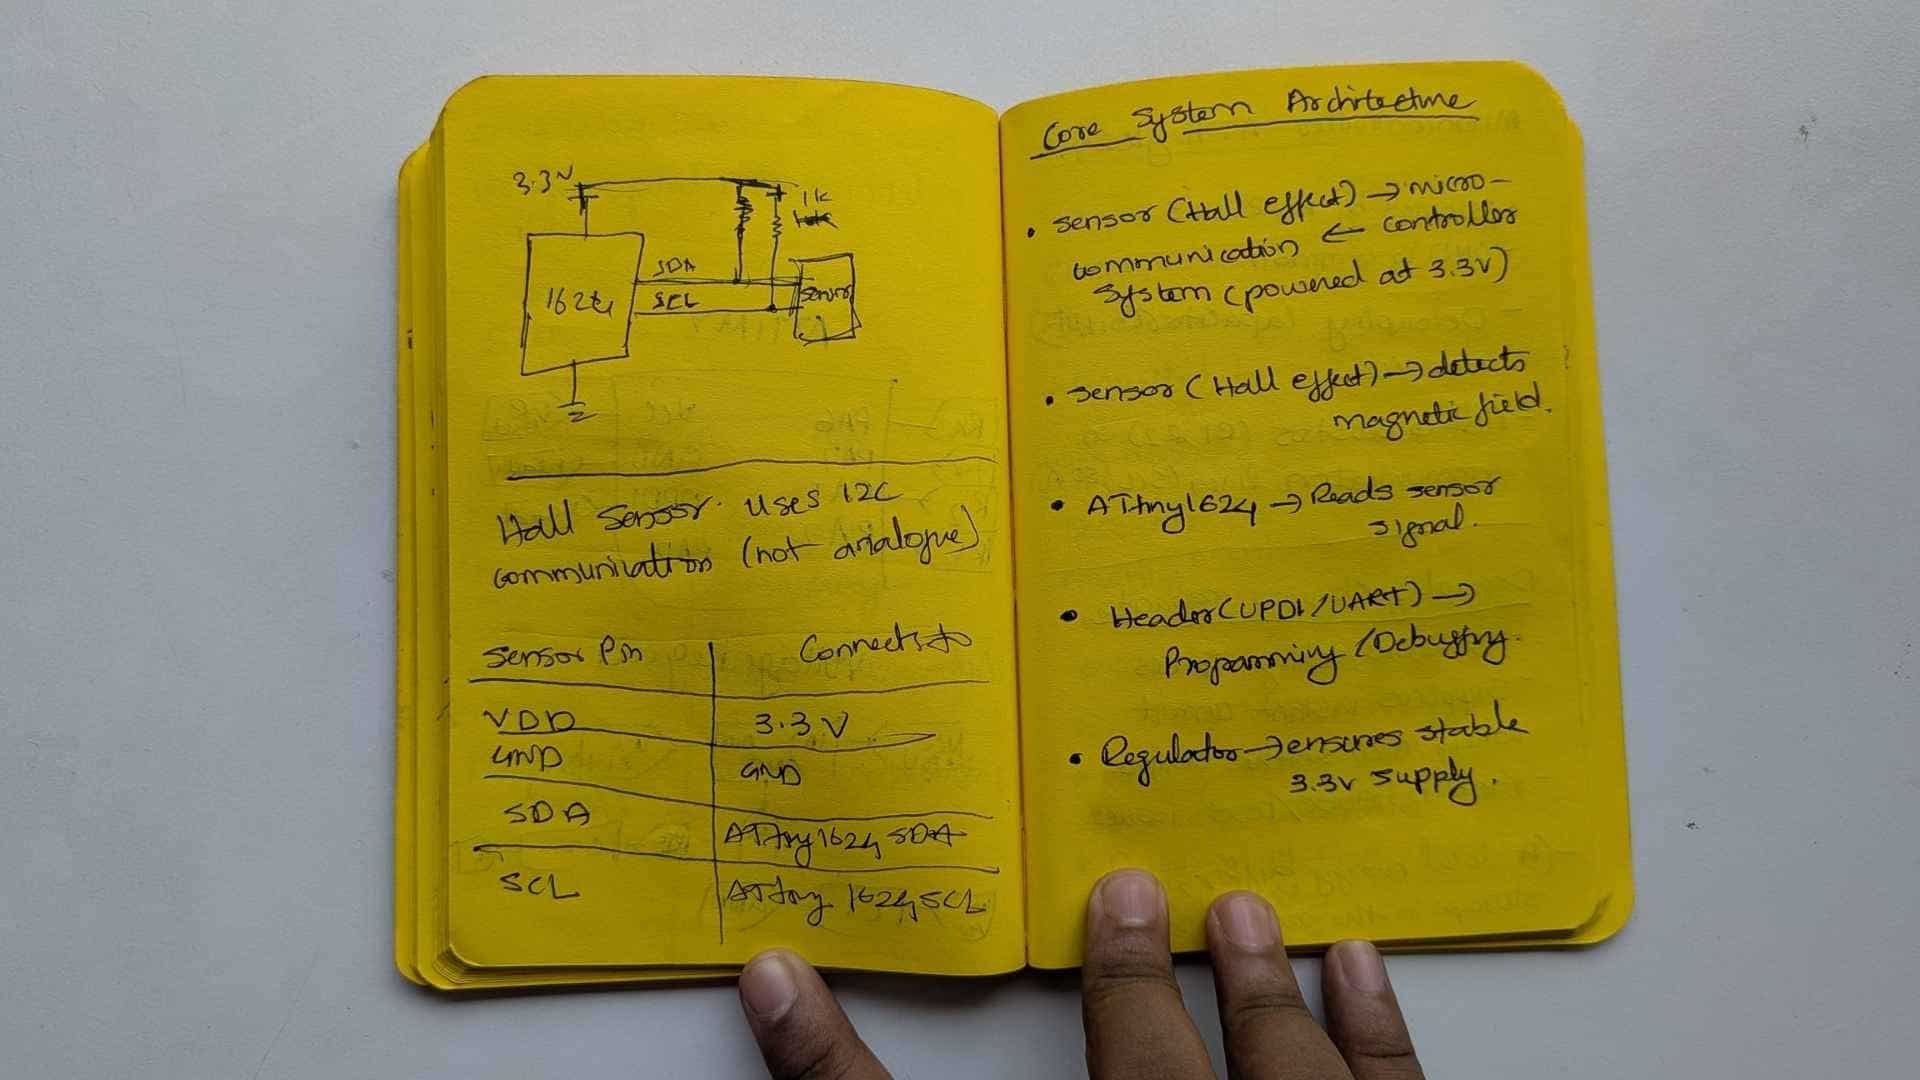 3.3V
1k
SDA
1624
SCL
sensor
Hall Sensor. Uses I2C
communication (not analogue)
Sensor Pin Connects to
VDD 3.3V
GND GND
SDA ATtiny1624 SDA
SCL ATtiny 1624 SCL
Core System Architecture
• Sensor (Hall effect) → micro-
controller
communication ←
System (powered at 3.3V)
• Sensor (Hall effect) → detects
magnetic field.
• ATtiny1624 → Reads sensor
signal.
• Header (UPDI/UART) →
Programming / Debugging.
• Regulator → ensures stable
3.3V supply.